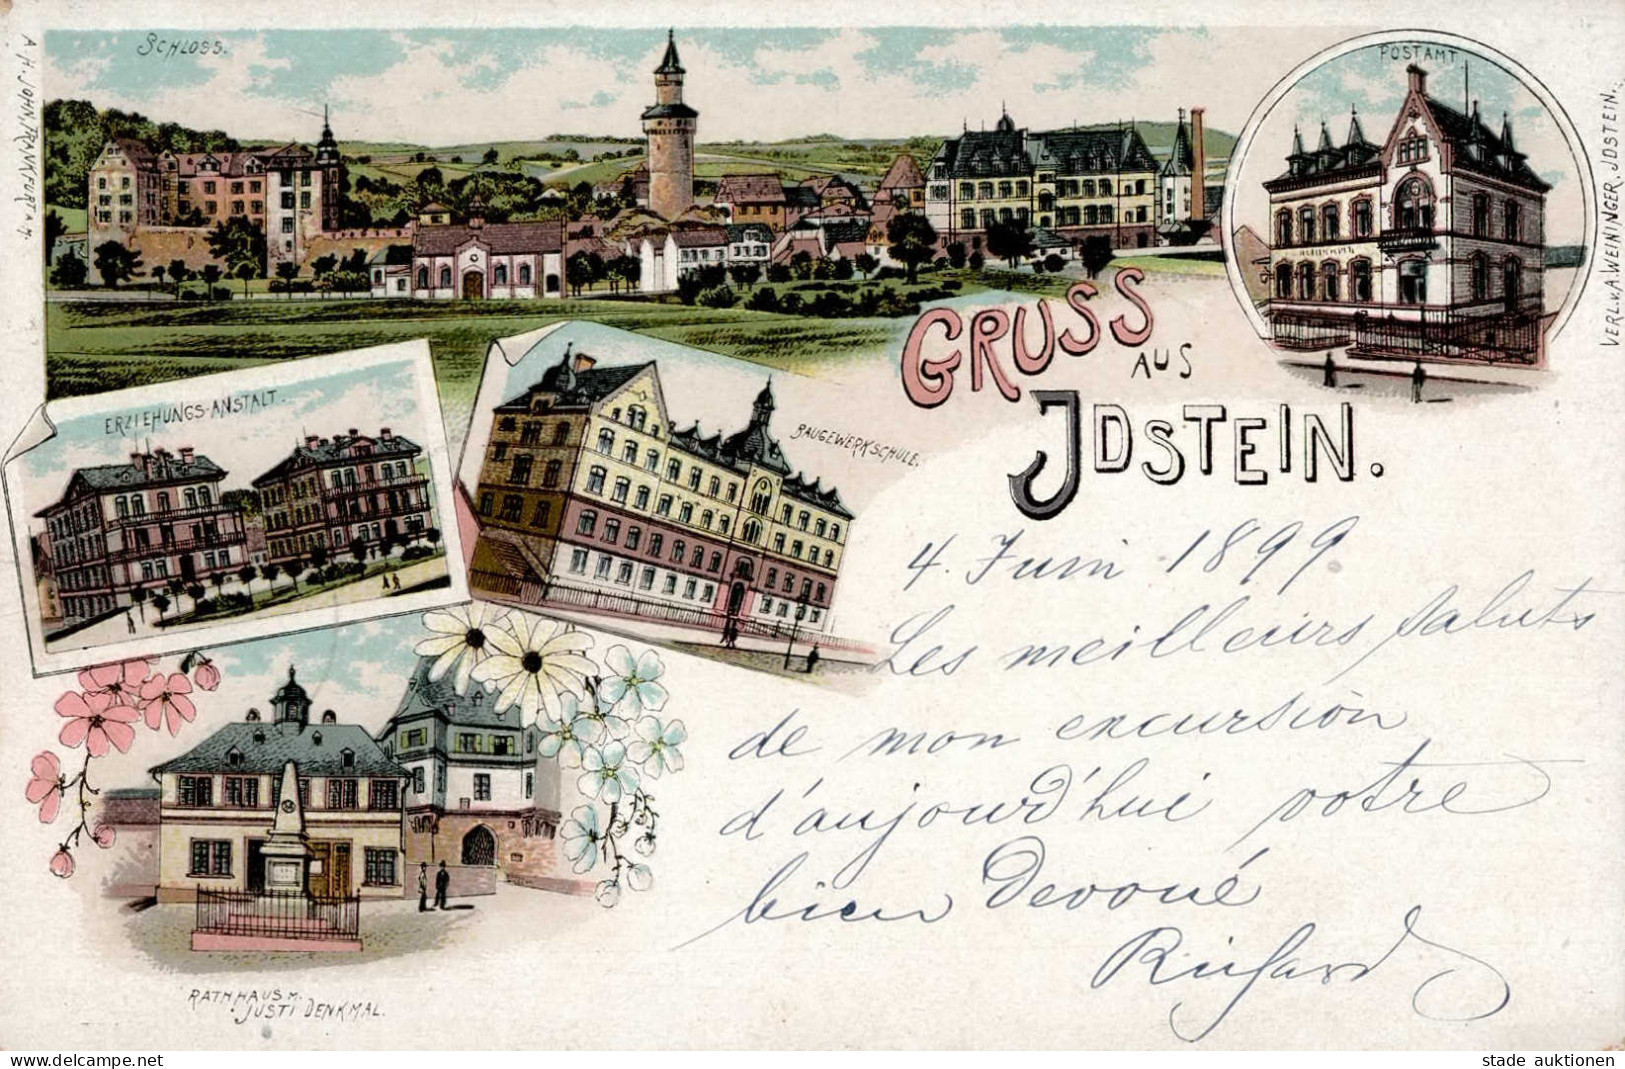 SCHLOSS.
POSTAMT
A. H. JOHN, FRANKFURT a. M.
VERL. v. A. WEININGER, JDSTEIN.
GRUSS
AUS
JDSTEIN.
ERZIEHUNGS-ANSTALT.
BAUGEWERKSCHULE.
4. Juin 1899
Les meilleurs saluts
de mon excursion
d'aujourd'hui votre
bien Devoué
Richard
RATHHAUS M.
JUSTI DENKMAL.
www.delcampe.net
stade auktionen